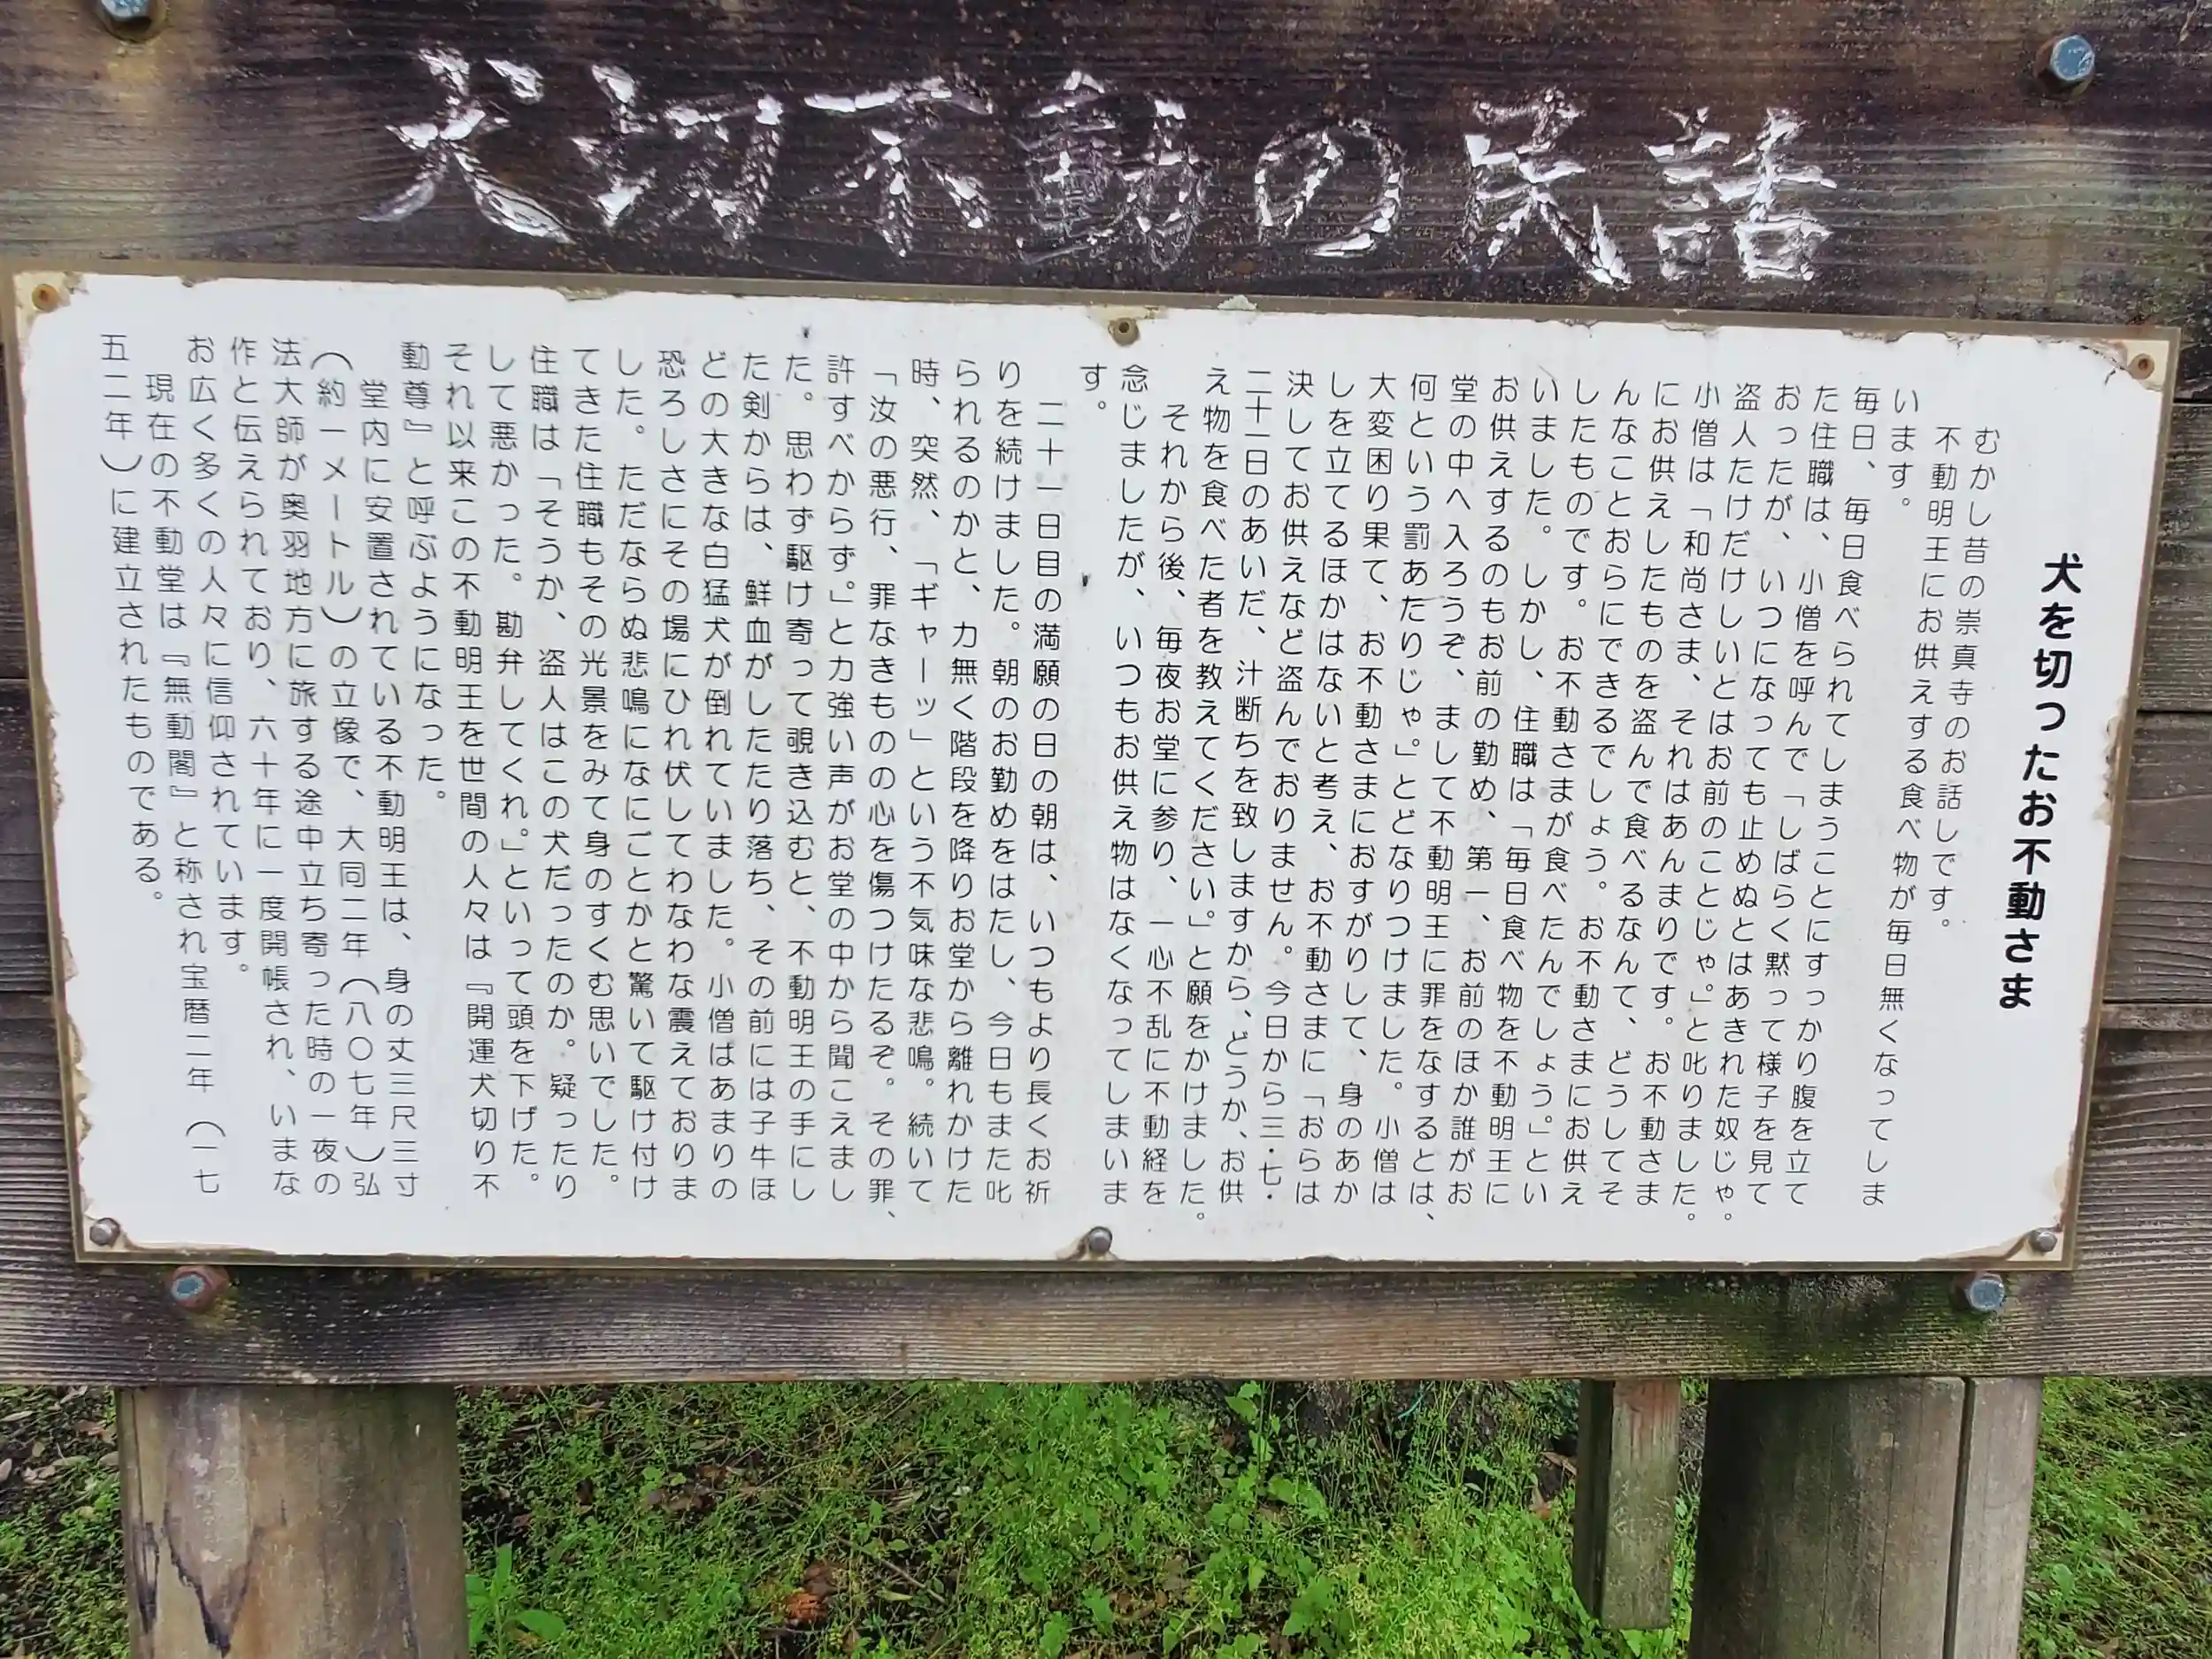 犬切不動の民話
犬を切ったお不動さま
むかし昔の崇真寺のお話しです。
不動明王にお供えする食べ物が毎日無くなってしま
います。
毎日、毎日食べられてしまうことにすっかり腹を立て
た住職は、小僧を呼んで「しばらく黙って様子を見て
おったが、いつになっても止めぬとはあきれた奴じゃ。
盗人たけだけしいとはお前のことじゃ。」と叱りました。
小僧は「和尚さま、それはあんまりです。お不動さま
にお供えしたものを盗んで食べるなんて、どうしてそ
んなことおらにできるでしょう。お不動さまにお供え
したものです。お不動さまが食べたんでしょう。」とい
いました。しかし、住職は「毎日食べ物を不動明王に
お供えするのもお前の勤め、第一、お前のほか誰がお
堂の中へ入ろうぞ、まして不動明王に罪をなするとは、
何という罰あたりじゃ。」とどなりつけました。小僧は
大変困り果て、お不動さまにおすがりして、身のあか
しを立てるほかはないと考え、お不動さまに「おらは
決してお供えなど盗んでおりません。今日から三・七・
二十一日のあいだ、汁断ちを致しますから、どうか、お供
え物を食べた者を教えてください。」と願をかけました。
それから後、毎夜お堂に参り、一心不乱に不動経を
念じましたが、いつもお供え物はなくなってしまいま
す。
二十一日目の満願の日の朝は、いつもより長くお祈
りを続けました。朝のお勤めをはたし、今日もまた叱
られるのかと、力無く階段を降りお堂から離れかけた
時、突然、「ギャーッ」という不気味な悲鳴。続いて
「汝の悪行、罪なきものの心を傷つけたるぞ。その罪、
許すべからず。」と力強い声がお堂の中から聞こえまし
た。思わず駆け寄って覗き込むと、不動明王の手にし
た剣からは、鮮血がしたたり落ち、その前には子牛ほ
どの大きな白猛犬が倒れていました。小僧はあまりの
恐ろしさにその場にひれ伏してわなわな震えておりま
した。ただならぬ悲鳴になにごとかと驚いて駆け付け
てきた住職もその光景をみて身のすくむ思いでした。
住職は「そうか、盗人はこの犬だったのか。疑ったり
して悪かった。勘弁してくれ。」といって頭を下げた。
それ以来この不動明王を世間の人々は『開運犬切り不
動尊』と呼ぶようになった。
堂内に安置されている不動明王は、身の丈三尺三寸
（約一メートル）の立像で、大同二年（八〇七年）弘
法大師が奥羽地方に旅する途中立ち寄った時の一夜の
作と伝えられており、六十年に一度開帳され、いまな
お広く多くの人々に信仰されています。
現在の不動堂は『無動閣』と称され宝暦二年（一七
五二年）に建立されたものである。